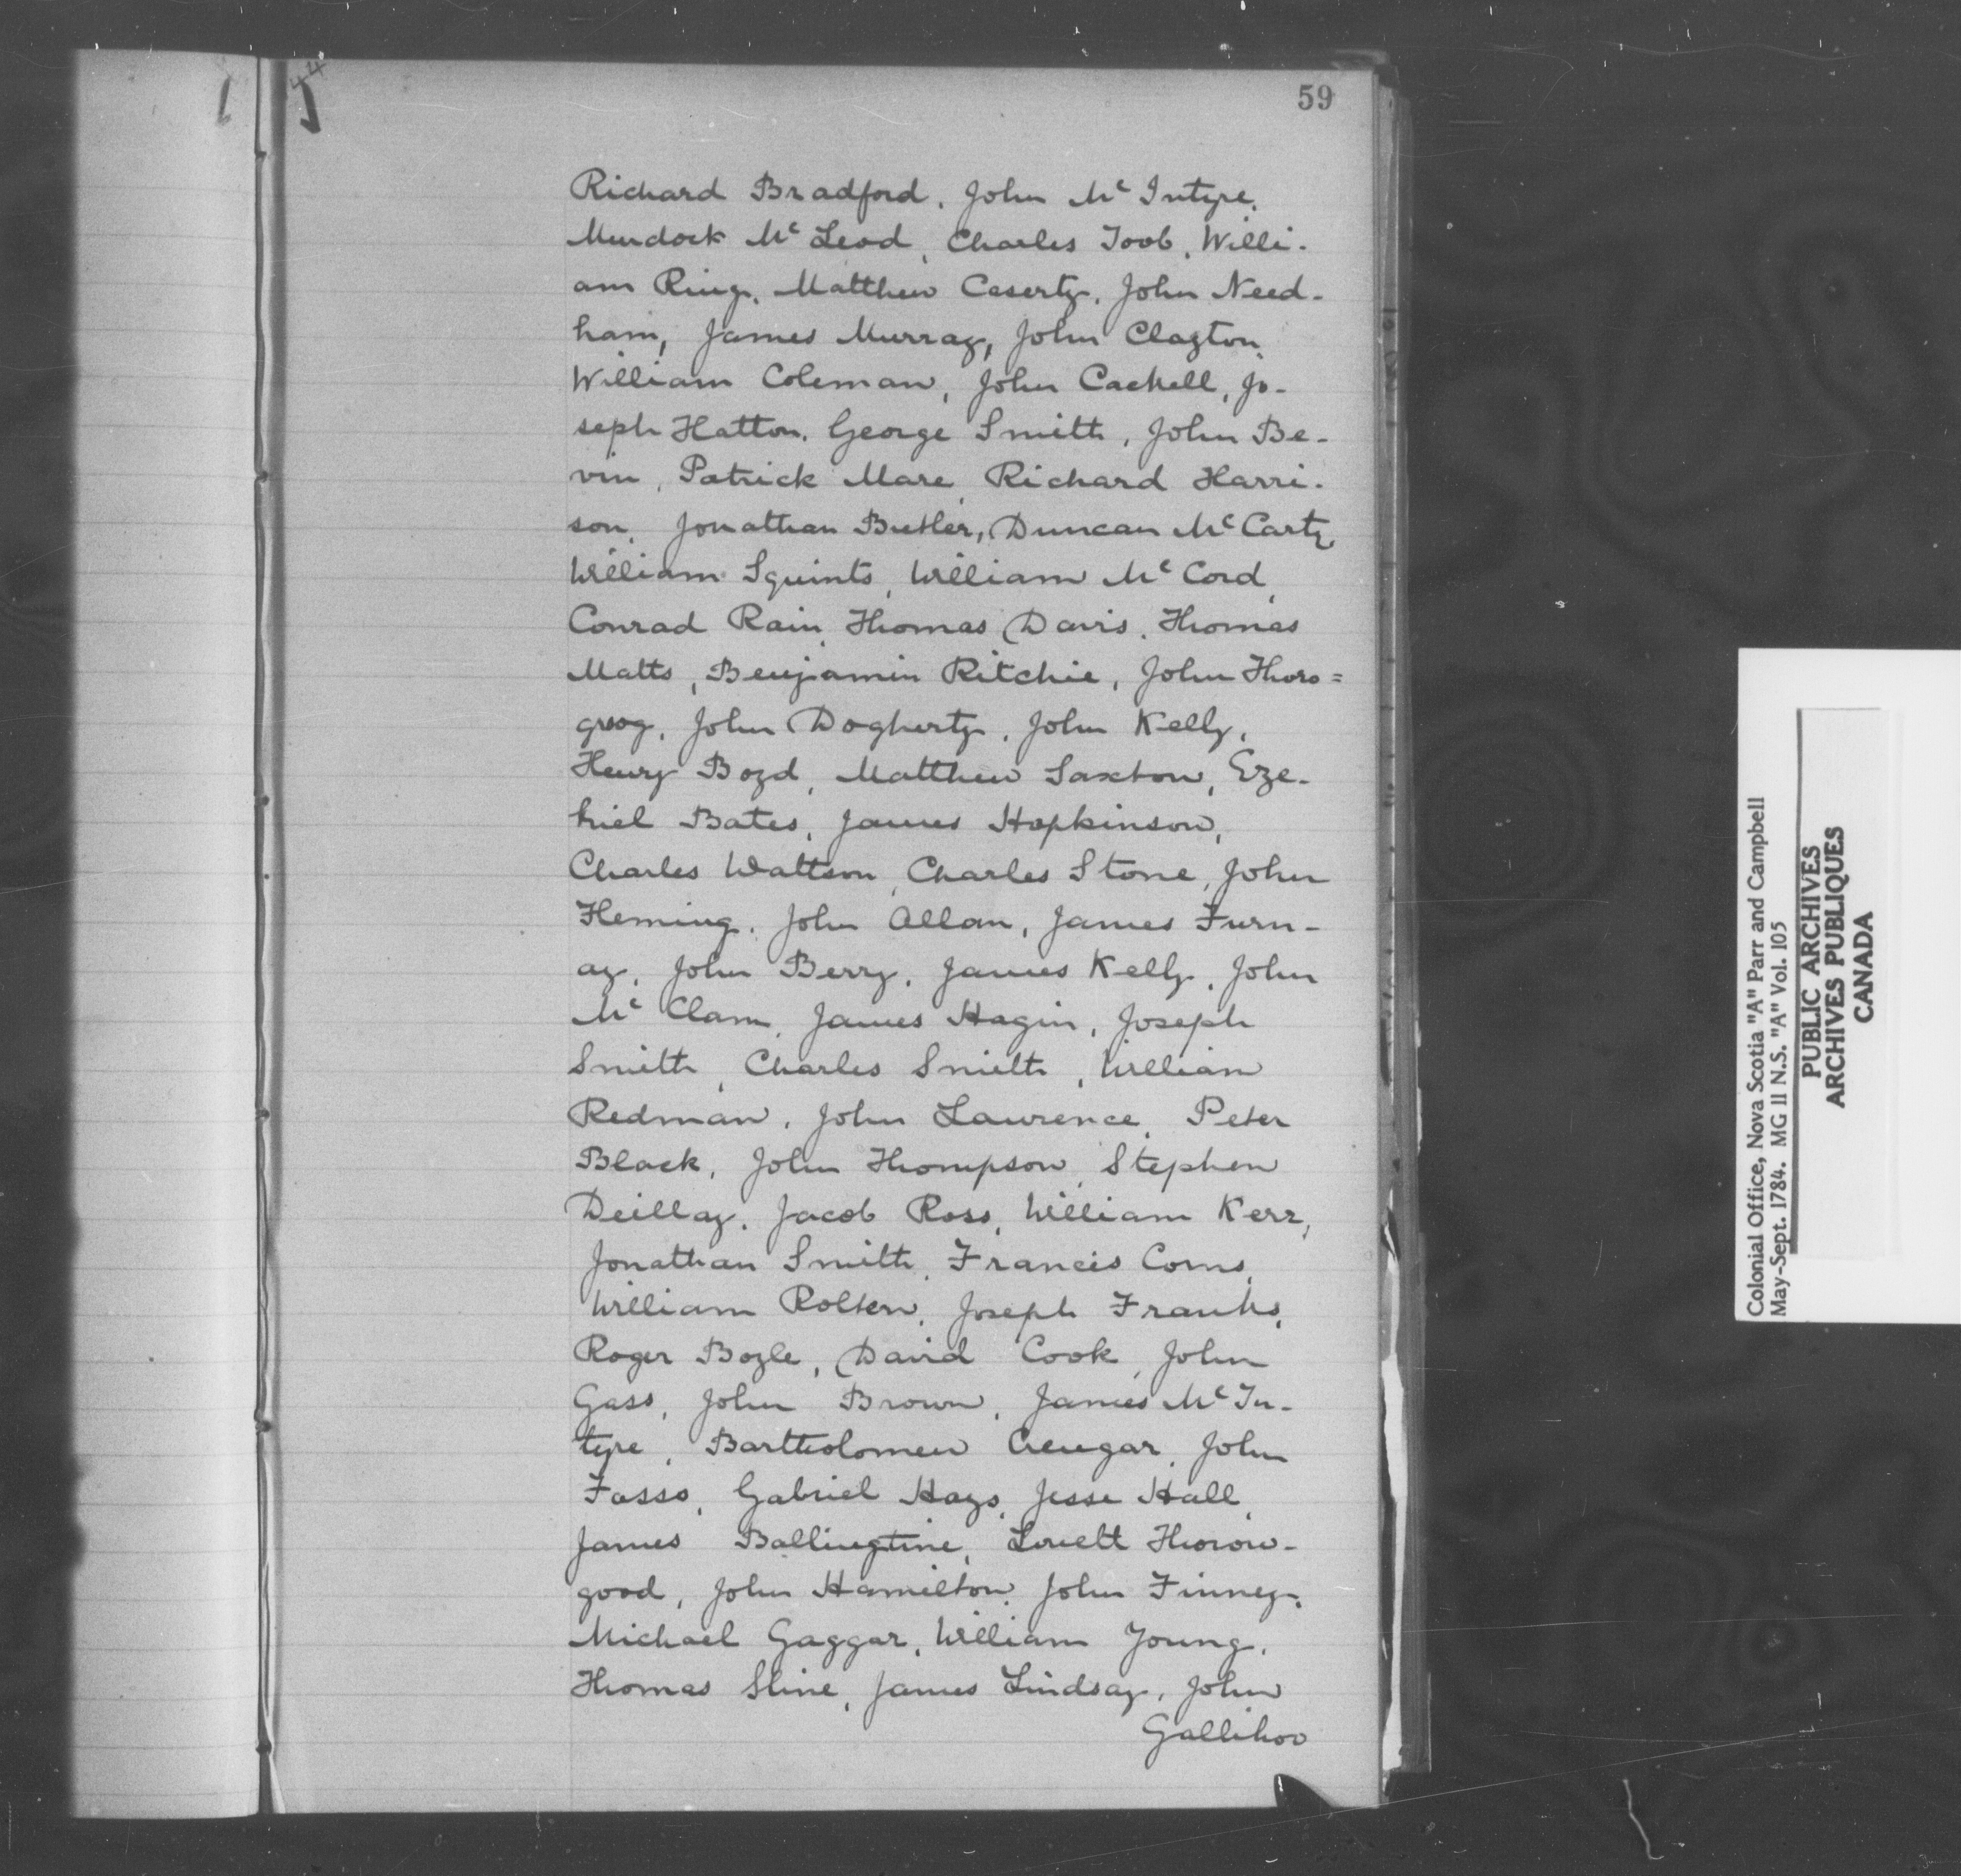 44
59
Richard Bradford, John Mc Intyre,
Murdock Mc Leod, Charles Toob, Willi-
am Ring, Matthew Caserty, John Need-
ham, James Murray, John Clayton,
William Coleman, John Cackell, Jo-
seph Hatton, George Smith, John Be-
vin, Patrick Mare, Richard Harri-
son, Jonathan Butler, Duncan Mc Carty,
William Squints, William Mc Cord,
Conrad Rain, Thomas Davis, Thomas
Matts, Benjamin Ritchie, John Thoro=
John Dogherty, John Kelly,
Henry Boyd, Matthew Saxton, Eze-
kiel Bates, James Hopkinson,
Charles Wattson, Charles Stone, John
Fleming, John Allan, James Furn-
ay, John Berry, James Kelly, John
Mc Clam, James Hagin, Joseph
Smith, Charles Smith, William
Redman, John Lawrence, Peter
Black, John Thompson, Stephen
Deillay, Jacob Ross, William Kerr,
Jonathan Smith, Francis Corns,
William Rolten, Joseph Franks,
Roger Boyle, David Cook, John
Gass, John Brown, James Mc In-
tyre, Bartholomew John
Fasso, Gabriel Hays, Jesse Hall,
James Ballingtine, Lovett Thorow-
good, John Hamilton, John Finney,
Michael Gaggar, William Young,
Thomas Sline, James Lindsay, John
Gallihoo
Colonial Office, Nova Scotia "A" Parr and Campbell
May-Sept. 1784. MG 11 N.S. "A" Vol. 105
PUBLIC ARCHIVES
ARCHIVES PUBLIQUES
CANADA